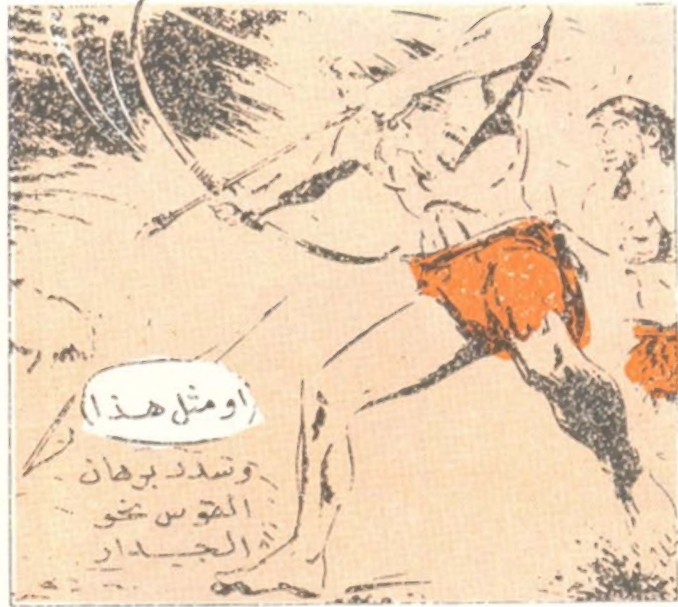 (او مثل هذا)
وسدد برهان
القوس نحو
الجدار